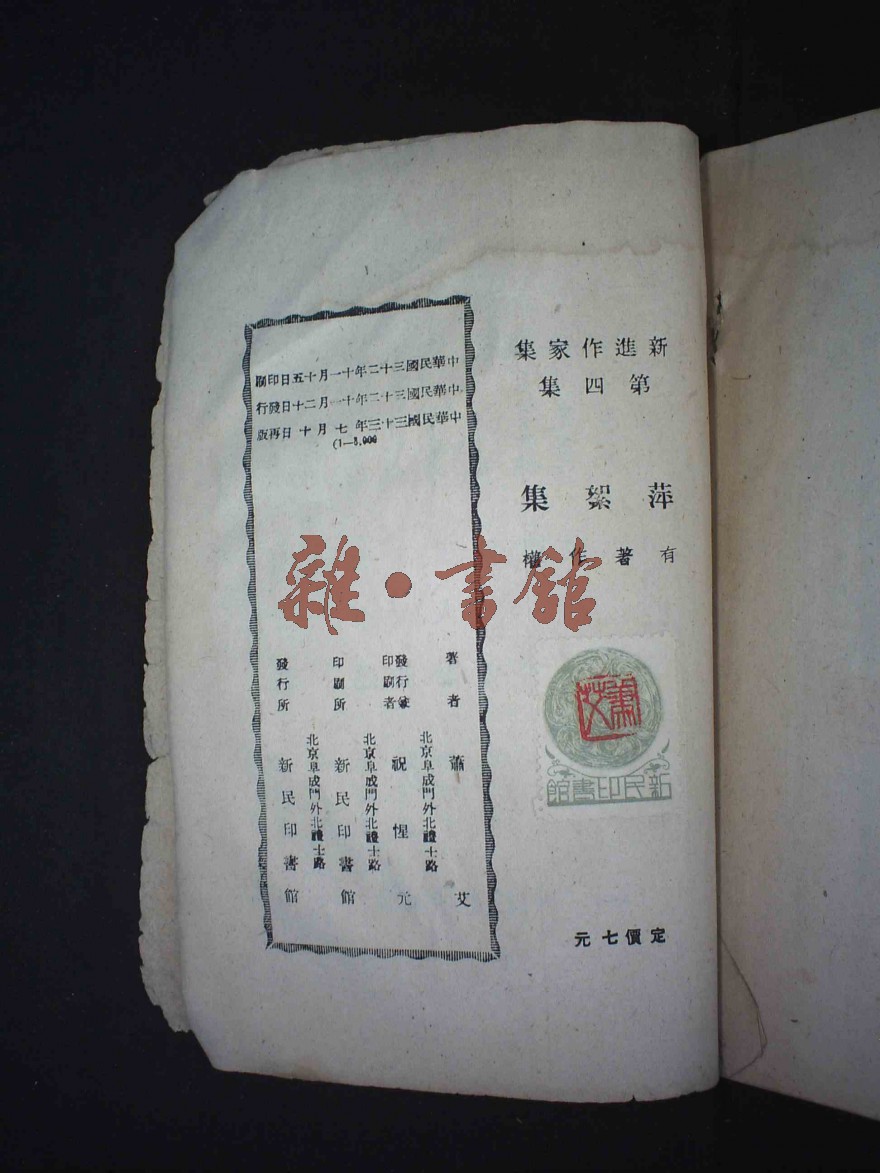 新進作家集
第四集
萍絮集
有著作權
蕭艾
新民印書館
定價七元
中華民國三十二年十一月十五日印刷
中華民國三十二年十一月二十日發行
中華民國三十三年七月十日再版
(1—3,000
著者 蕭艾
北京阜成門外北禮士路
發行兼印刷者 祝惺元
北京阜成門外北禮士路
印刷所 新民印書館
北京阜成門外北禮士路
發行所 新民印書館
雜·書館